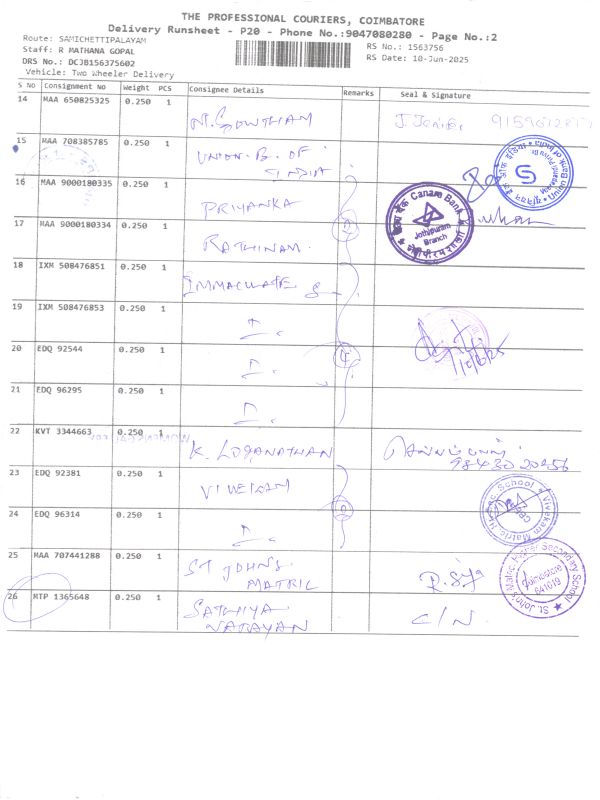 THE PROFESSIONAL COURIERS, COIMBATORE
Delivery Runsheet - P20 - Phone No.:9047080280 - Page No.:2
Route: SAMICHETTIPALAYAM
RS No.: 1563756
Staff: R MATHANA GOPAL
RS Date: 10-Jun-2025
DRS No.: DCJB156375602
Vehicle: Two Wheeler Delivery
S No Consignment No Weight PCS Consignee Details Remarks Seal & Signature
14 MAA 650825325 0.250 1
N. GOWTHAM
15 MAA 708385785 0.250 1
UNION. B. OF INDIA
16 MAA 9000180335 0.250 1
PRIYANKA
Canara Bank
Jothipuram
Branch
17 MAA 9000180334 0.250 1
RATHINAM.
18 IXM 508476851 0.250 1
IMMACULATE
19 IXM 508476853 0.250 1
20 EDQ 92544 0.250 1
21 EDQ 96295 0.250 1
22 KVT 3344663 0.250 1
K. LOGANATHAN
98430 20256
23 EDQ 92381 0.250 1
VIVEKAM
24 EDQ 96314 0.250 1
25 MAA 707441288 0.250 1
ST JOHNS
MATRIC
St. John's Matric. Higher Secondary School
Coimbatore
641019
26 MTP 1365648 0.250 1
SATHIYA
NARAYAN
C/N